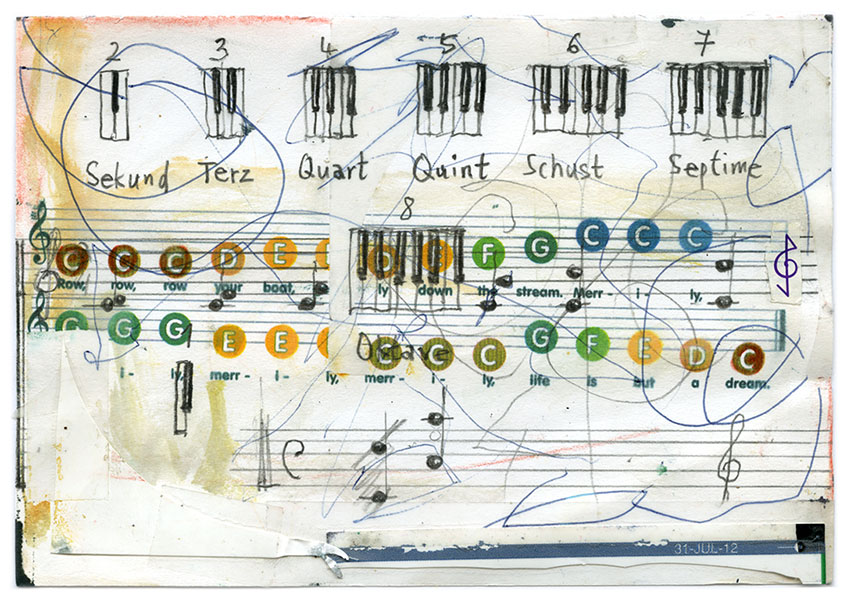 2 3 4 5 6 7
Sekund Terz Quart Quint Schust Septime
8
C C C D E D E F G C C C
Row, row, row your boat, ly down the stream. Merr - i - ly,
G G G E E C C C G F E D C
i - ly, merr - i - ly, merr - i - ly, life is but a dream.
Oktave
C
31-JUL-12